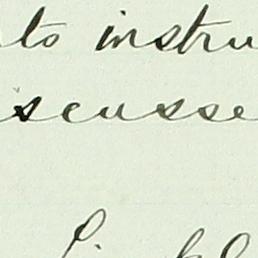 to instru
scusse